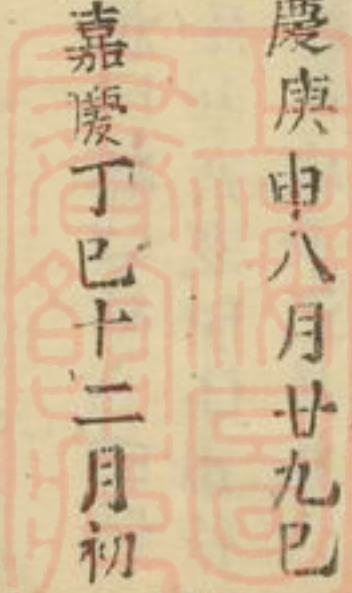 慶庚申八月廿九巳
嘉慶丁巳十二月初